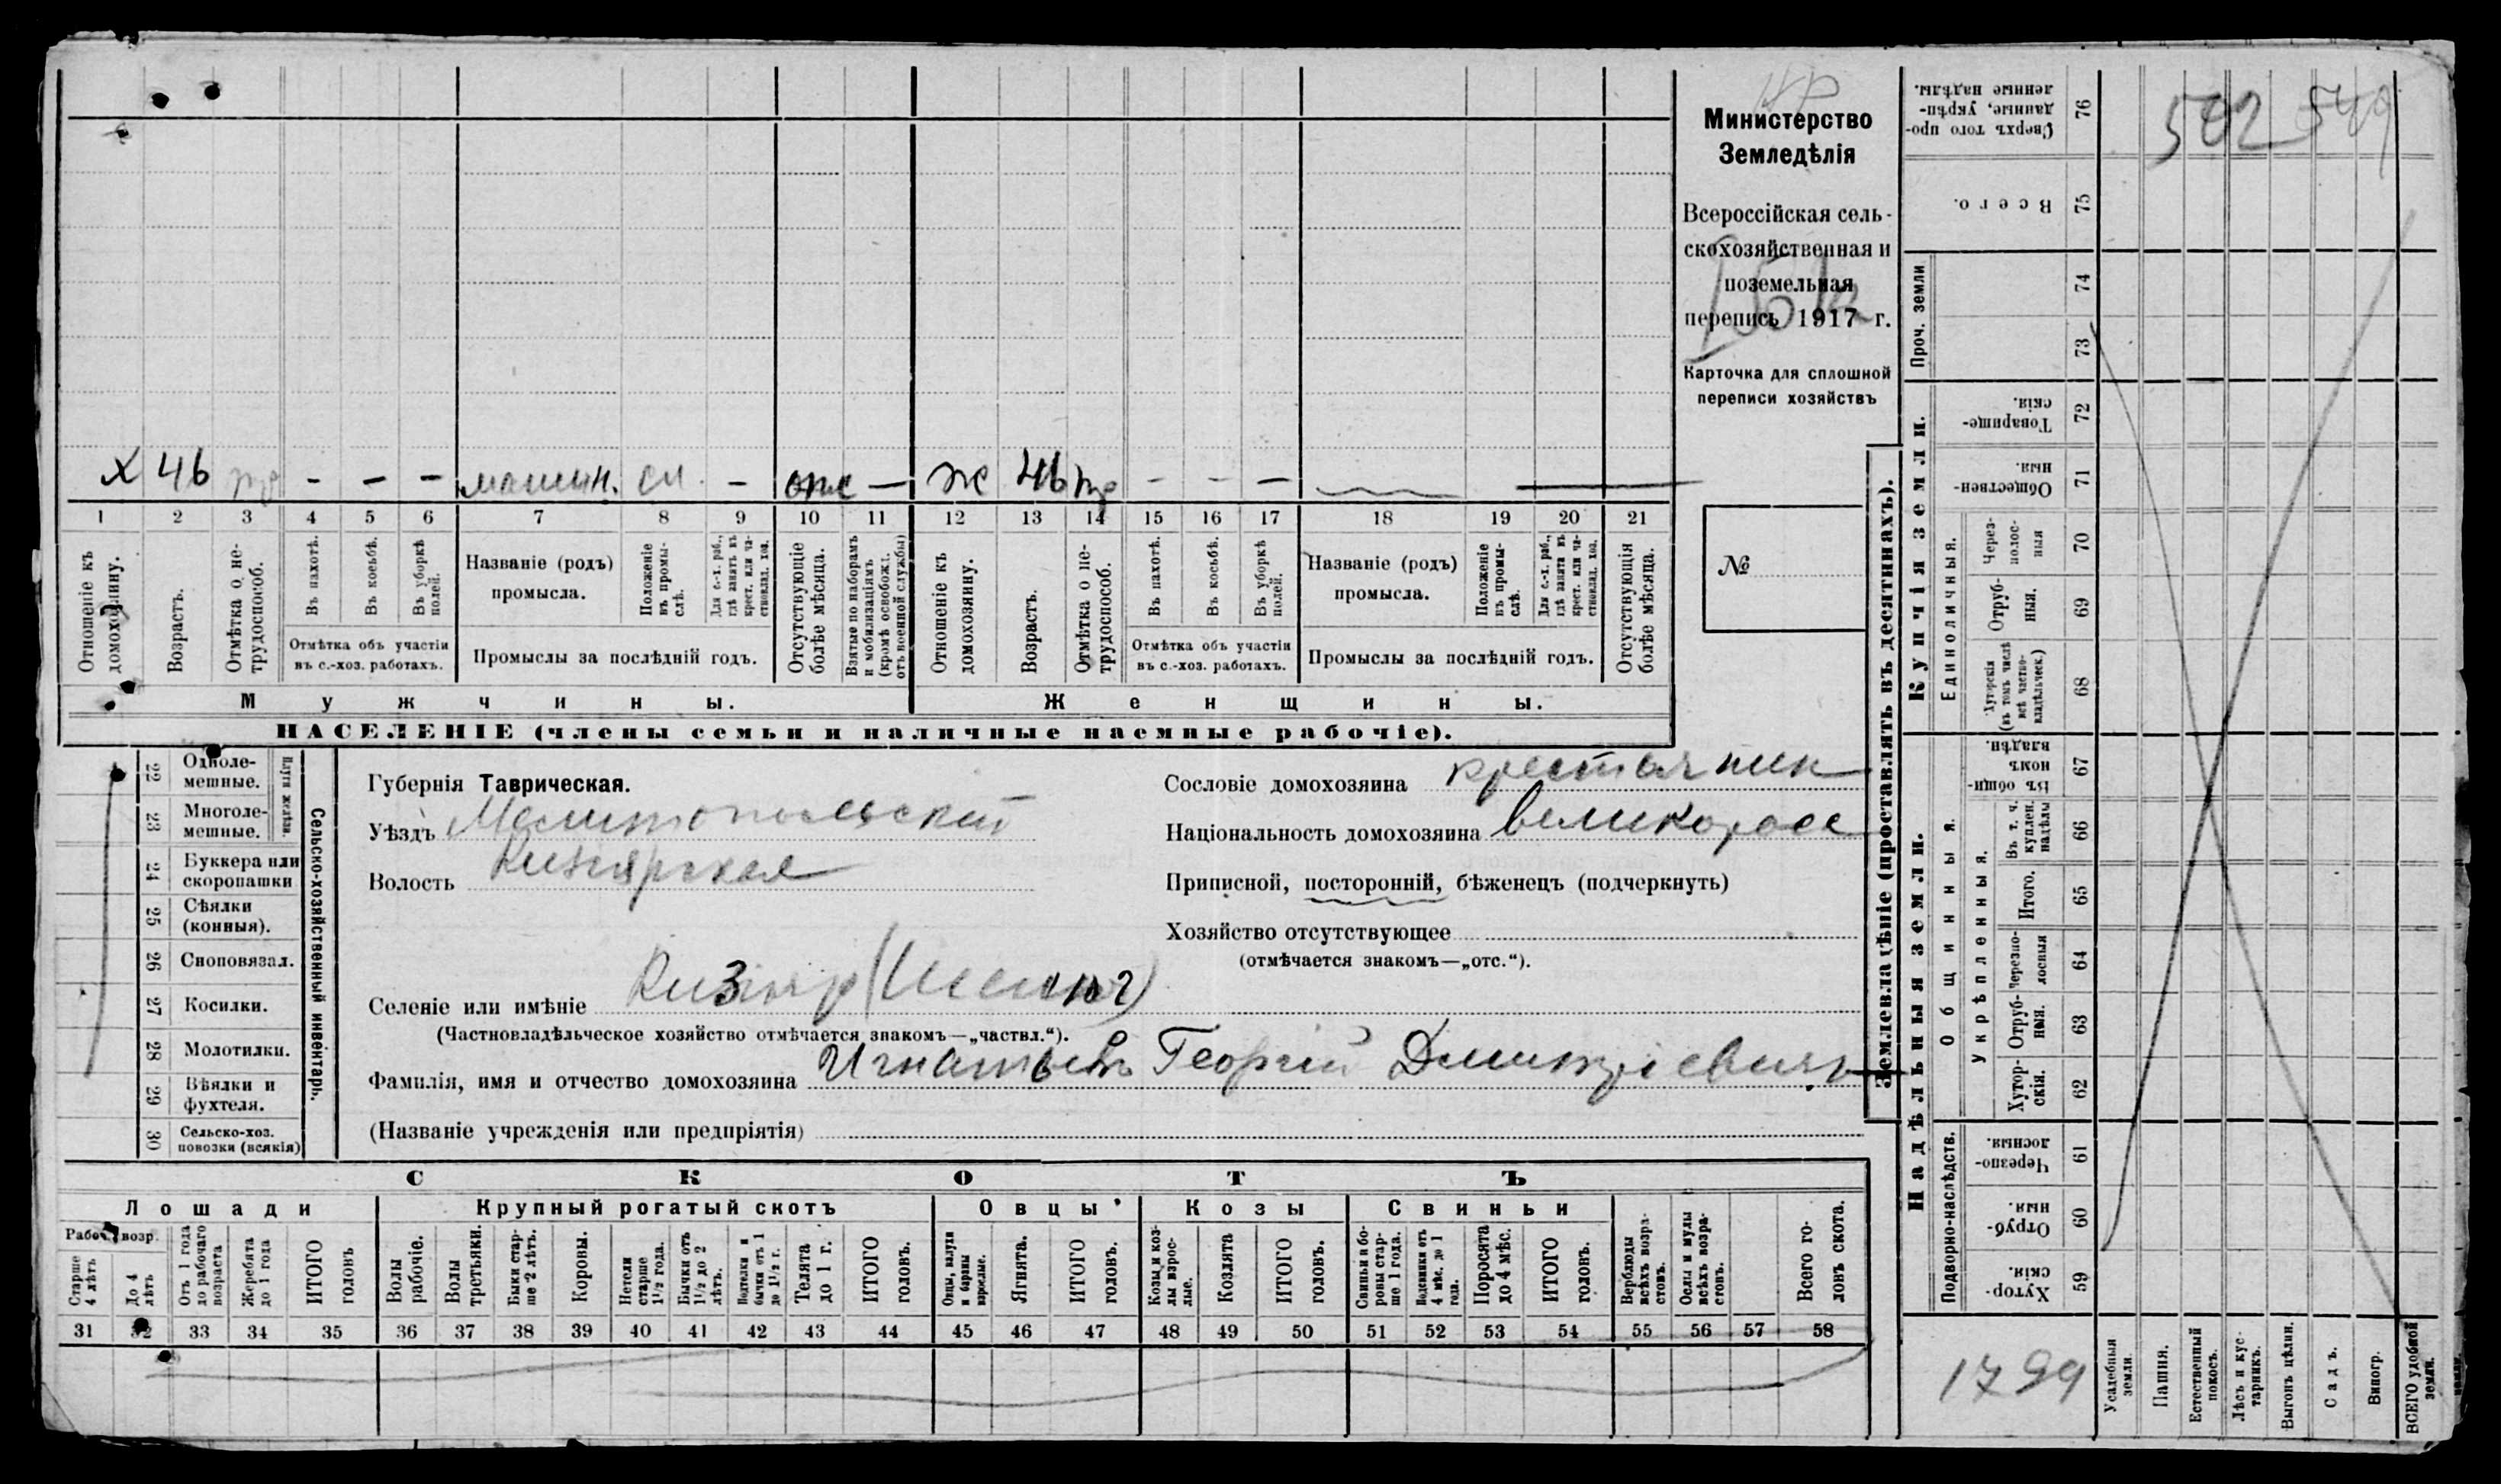 х 46 – – – машин. сл. – – ж 46 – – –
1 2 3 4 5 6 7 8 9 10 11 12 13 14 15 16 17 18 19 20 21
Отношеніе къ домохозяину.
Возрастъ.
Отмѣтка о не-трудоспособ.
Въ пахотѣ.
Въ косьбѣ.
Въ уборкѣ полей.
Отмѣтка объ участіи
въ с.-хоз. работахъ.
Названіе (родъ)
промысла.
Положеніе въ промы-слѣ.
Для с.-х. раб., гдѣ занятъ въ крест. или ча-стновлад. хоз.
Промыслы за послѣдній годъ.
Отсутствующіе болѣе мѣсяца.
Взятые по наборамъ и мобилизаціямъ (кромѣ освобожд. отъ военной службы)
Отношеніе къ домохозяину.
Возрастъ.
Отмѣтка о не-трудоспособ.
Въ пахотѣ.
Въ косьбѣ.
Въ уборкѣ полей.
Отмѣтка объ участіи
въ с.-хоз. работахъ.
Названіе (родъ)
промысла.
Положеніе въ промы-слѣ.
Для с.-х. раб., гдѣ занята въ крест. или ча-стновлад. хоз.
Промыслы за послѣдній годъ.
Отсутствующія болѣе мѣсяца.
Мужчины.
Женщины.
НАСЕЛЕНІЕ (члены семьи и наличные наемные рабочіе).
Министерство
Земледѣлія
Всероссійская сель-
скохозяйственная и
поземельная
перепись 1917 г.
Карточка для сплошной
переписи хозяйствъ
№
22 Одноле-
мешные.
23 Многоле-
мешные.
Плуги желѣзн.
24 Буккера или
скоропашки
25 Сѣялки
(конныя).
26 Сноповязал.
27 Косилки.
28 Молотилки.
29 Вѣялки и
фухтеля.
30 Сельско-хоз.
повозки (всякія)
Сельско-хозяйственный инвентарь.
Губернія Таврическая.
Уѣздъ Мелитопольскій
Волость Кизіярская
Селеніе или имѣніе Кизіяр
(Частновладѣльческое хозяйство отмѣчается знакомъ—„частвл.“).
Фамилія, имя и отчество домохозяина Игнатьевъ Георгій Дмитріевичъ
(Названіе учрежденія или предпріятія)
Сословіе домохозяина крестьянин
Національность домохозяина великоросс
Приписной, посторонній, бѣженецъ (подчеркнуть)
Хозяйство отсутствующее
(отмѣчается знакомъ—„отс.“).
СКОТЪ
Лошади
Крупный рогатый скотъ
Овцы
Козы
Свиньи
Рабоч. возр.
Старше 4 лѣтъ
До 4 лѣтъ
Отъ 1 года до рабочаго возраста
Жеребята до 1 года
ИТОГО головъ
Волы рабочіе.
Волы третьяки.
Быки стар-ше 2 лѣтъ.
Коровы.
Нетели старше 1½ года.
Бычки отъ 1½ до 2 лѣтъ.
Подтелки и бычки отъ 1 до 1½ г.
Телята до 1 г.
ИТОГО головъ.
Овцы, валухи и бараны взрослые.
Ягнята.
ИТОГО головъ.
Козы и коз-лы взрос-лые.
Козлята
ИТОГО головъ.
Свиньи и бо-ровы стар-ше 1 года.
Подсвинки отъ 4 мѣс. до 1 года.
Поросята до 4 мѣс.
ИТОГО головъ.
Верблюды всѣхъ возра-стовъ.
Ослы и мулы всѣхъ возра-стовъ.
Всего го-ловъ скота.
31 32 33 34 35 36 37 38 39 40 41 42 43 44 45 46 47 48 49 50 51 52 53 54 55 56 57 58
Землевладѣніе (проставлять въ десятинахъ).
Купчія земли.
Надѣльныя земли.
Сверхъ того про-данные, укрѣп-ленные надѣлы. 76
Всего. 75
Проч. земли
74
73
Товарище-скія. 72
Обществен-ныя. 71
Единоличныя.
Через-полос-ныя 70
Отруб-ныя. 69
Хуторскія (въ томъ числѣ всѣ частно-владѣльческ.) 68
Общинныя.
Въ общин-номъ владѣн. 67
Укрѣпленныя.
Въ т. ч. куплен. надѣлы 66
Итого. 65
Черезпо-лосныя 64
Отруб-ныя. 63
Хутор-скія. 62
Подворно-наслѣдств.
Черезпо-лосныя. 61
Отруб-ныя. 60
Хутор-скія. 59
502 549
1799
Усадебныя земли.
Пашня.
Естественный покосъ.
Лѣсъ и кус-тарникъ.
Выгонъ цѣлин.
Садъ.
Виногр.
ВСЕГО удобной земли.